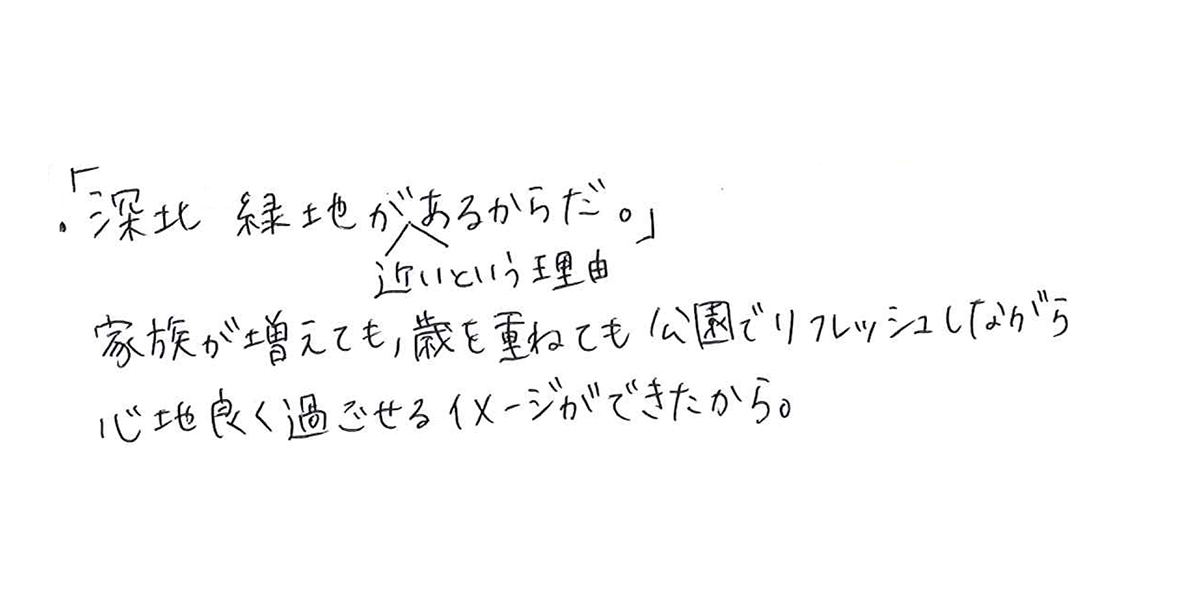 ・「深北 緑地があるからだ。」
近いという理由
家族が増えても,歳を重ねても公園でリフレッシュしながら
心地良く過ごせるイメージができたから。